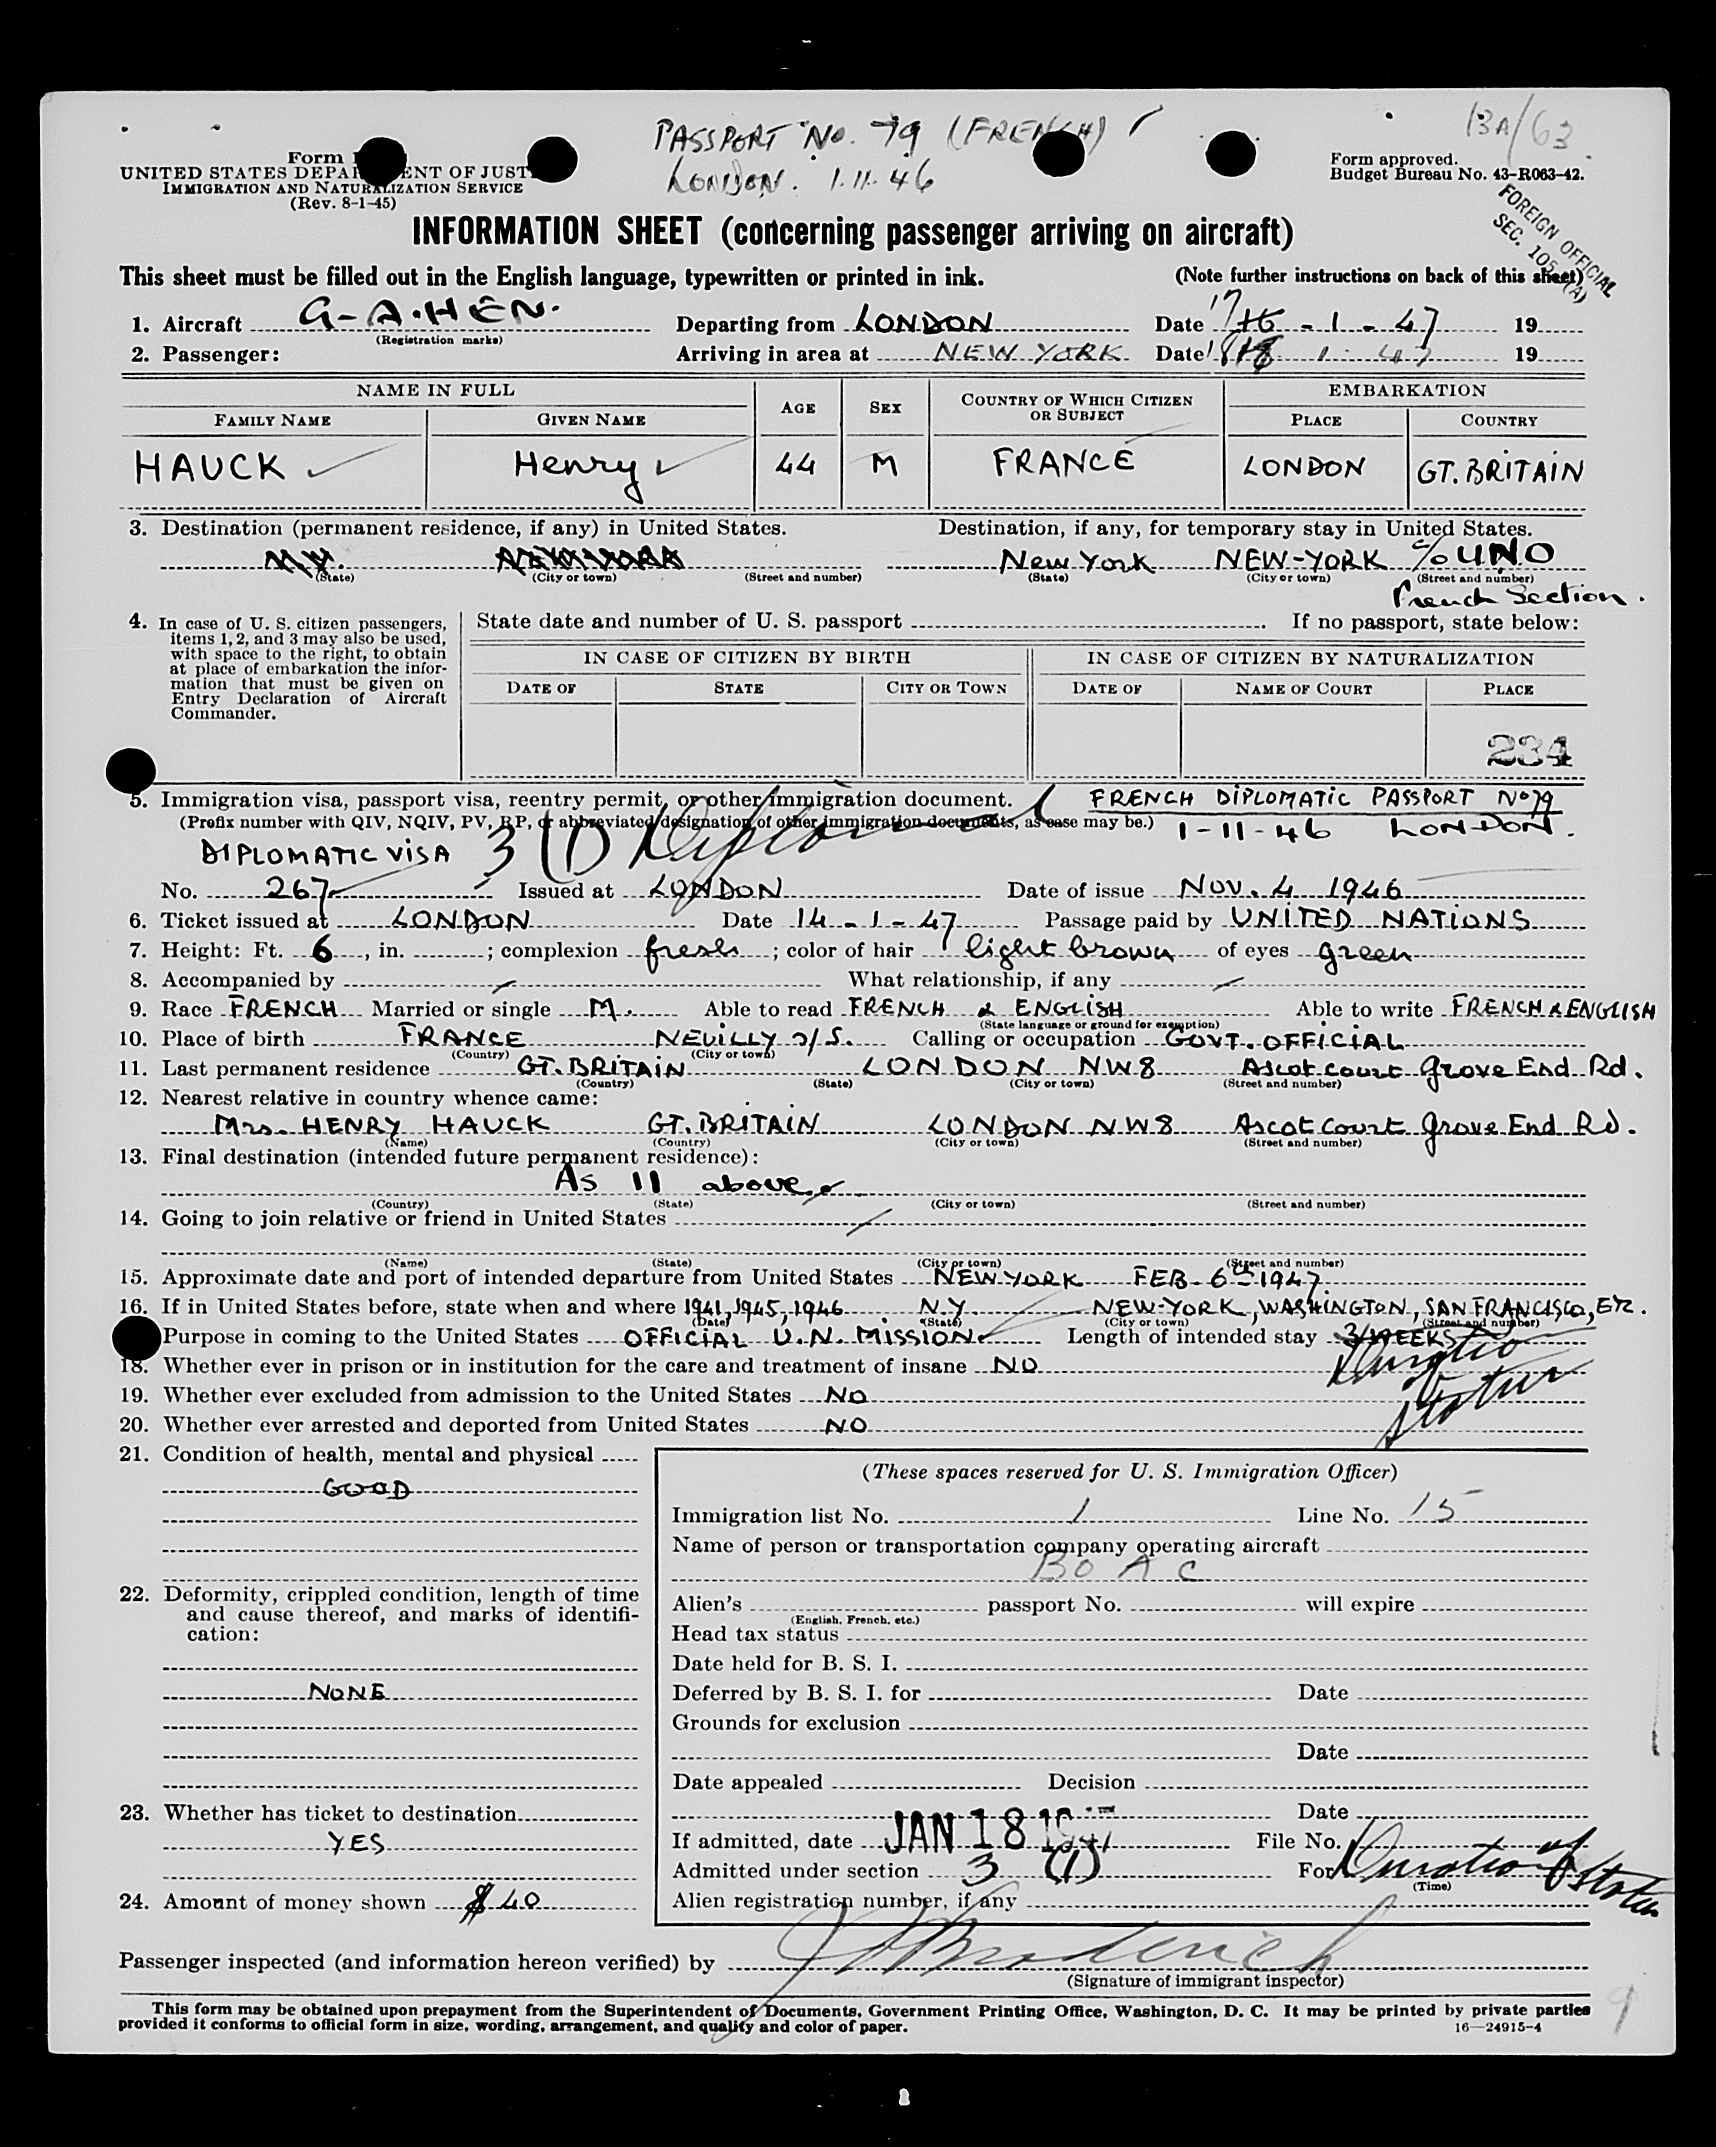 PASSPORT No. 79 (FRENCH)
LONDON. 1.11.46
13A/63
Form
UNITED STATES DEPARTMENT OF JUST
IMMIGRATION AND NATURALIZATION SERVICE
(Rev. 8-1-45)
Form approved.
Budget Bureau No. 43-R063-42.
FOREIGN OFFICIAL
SEC. 105 (A)
INFORMATION SHEET (concerning passenger arriving on aircraft)
This sheet must be filled out in the English language, typewritten or printed in ink.
(Note further instructions on back of this sheet)
1. Aircraft G-A.HEN. Departing from LONDON Date 17 - 1 - 47 19
(Registration marks)
2. Passenger: Arriving in area at NEW YORK Date 18 1 47 19
NAME IN FULL AGE SEX COUNTRY OF WHICH CITIZEN OR SUBJECT EMBARKATION
FAMILY NAME GIVEN NAME PLACE COUNTRY
HAUCK Henry 44 M FRANCE LONDON GT. BRITAIN
3. Destination (permanent residence, if any) in United States. Destination, if any, for temporary stay in United States.
N.Y. NEW YORK New York NEW-YORK c/o UNO
(State) (City or town) (Street and number) (State) (City or town) (Street and number)
French Section.
4. In case of U. S. citizen passengers, items 1, 2, and 3 may also be used, with space to the right, to obtain at place of embarkation the information that must be given on Entry Declaration of Aircraft Commander.
State date and number of U. S. passport . If no passport, state below:
IN CASE OF CITIZEN BY BIRTH IN CASE OF CITIZEN BY NATURALIZATION
DATE OF STATE CITY OR TOWN DATE OF NAME OF COURT PLACE
234
5. Immigration visa, passport visa, reentry permit, or other immigration document. FRENCH DIPLOMATIC PASSPORT No 79
(Prefix number with QIV, NQIV, PV, RP, or abbreviated designation of other immigration documents, as case may be.) 1-11-46 LONDON.
DIPLOMATIC VISA 3 (1) Diploma
No. 267 Issued at LONDON Date of issue NOV. 4 1946
6. Ticket issued at LONDON Date 14-1-47 Passage paid by UNITED NATIONS
7. Height: Ft. 6, in. ; complexion fresh ; color of hair light brown of eyes green
8. Accompanied by What relationship, if any
9. Race FRENCH Married or single M. Able to read FRENCH & ENGLISH Able to write FRENCH & ENGLISH
(State language or ground for exemption)
10. Place of birth FRANCE NEUILLY s/S. Calling or occupation GOVT. OFFICIAL
(Country) (City or town)
11. Last permanent residence GT. BRITAIN LONDON NW8 Ascot Court Grove End Rd.
(Country) (State) (City or town) (Street and number)
12. Nearest relative in country whence came:
Mrs. HENRY HAUCK GT. BRITAIN LONDON NW8 Ascot Court Grove End Rd.
(Name) (Country) (City or town) (Street and number)
13. Final destination (intended future permanent residence):
As 11 above
(Country) (State) (City or town) (Street and number)
14. Going to join relative or friend in United States
(Name) (State) (City or town) (Street and number)
15. Approximate date and port of intended departure from United States NEW YORK FEB. 6th 1947
16. If in United States before, state when and where 1941, 1945, 1946 N.Y. NEW-YORK, WASHINGTON, SAN FRANCISCO, ETC.
(Date) (State) (City or town) (Street and number)
Purpose in coming to the United States OFFICIAL U.N. MISSION Length of intended stay 3 WEEKS
Duration of status
18. Whether ever in prison or in institution for the care and treatment of insane NO
19. Whether ever excluded from admission to the United States NO
20. Whether ever arrested and deported from United States NO
21. Condition of health, mental and physical
GOOD
22. Deformity, crippled condition, length of time and cause thereof, and marks of identification:
NONE
23. Whether has ticket to destination
YES
24. Amount of money shown $40
(These spaces reserved for U. S. Immigration Officer)
Immigration list No. 1 Line No. 15
Name of person or transportation company operating aircraft
BOAC
Alien's passport No. will expire
(English, French, etc.)
Head tax status
Date held for B. S. I.
Deferred by B. S. I. for Date
Grounds for exclusion
Date
Date appealed Decision
Date
If admitted, date JAN 18 1947 File No.
Admitted under section 3 (1) For Duration of Status
(Time)
Alien registration number, if any
Passenger inspected (and information hereon verified) by
(Signature of immigrant inspector)
This form may be obtained upon prepayment from the Superintendent of Documents, Government Printing Office, Washington, D. C. It may be printed by private parties
provided it conforms to official form in size, wording, arrangement, and quality and color of paper.
16—24915-4
9